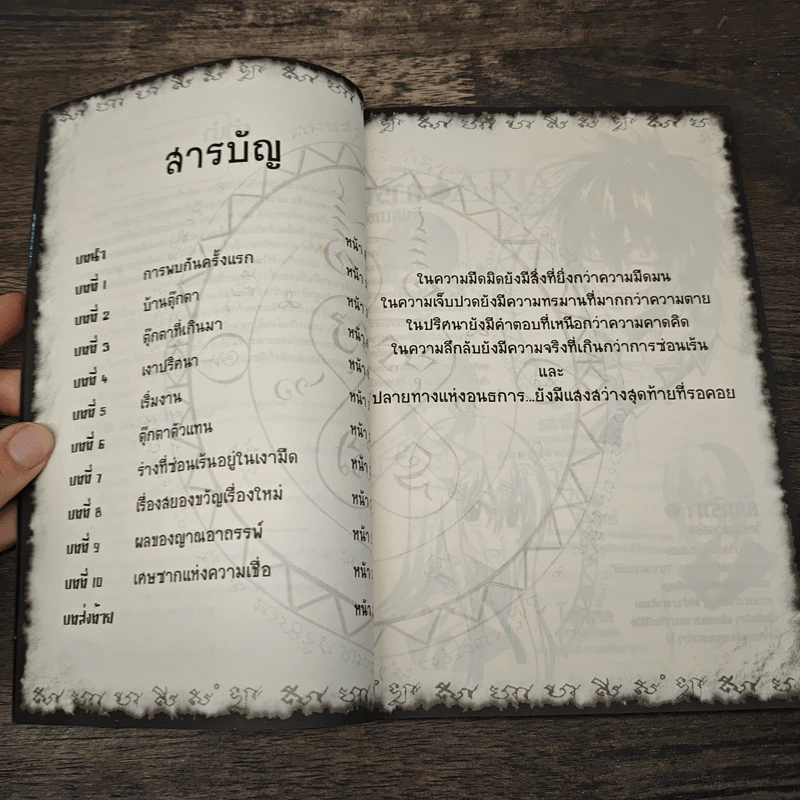 สารบัญ
บทนำ หน้า
บทที่ 1 การพบกันครั้งแรก หน้า
บทที่ 2 บ้านตุ๊กตา หน้า
บทที่ 3 ตุ๊กตาที่เกินมา หน้า
บทที่ 4 เงาปริศนา หน้า
บทที่ 5 เริ่มงาน หน้า
บทที่ 6 ตุ๊กตาตัวแทน หน้า
บทที่ 7 ร่างที่ซ่อนเร้นอยู่ในเงามืด หน้า
บทที่ 8 เรื่องสยองขวัญเรื่องใหม่ หน้า
บทที่ 9 ผลของญาณอาถรรพ์ หน้า
บทที่ 10 เศษซากแห่งความเชื่อ หน้า
บทส่งท้าย หน้า
ในความมืดมิดยังมีสิ่งที่ยิ่งกว่าความมืดมน
ในความเจ็บปวดยังมีความทรมานที่มากกว่าความตาย
ในปริศนายังมีคำตอบที่เหนือกว่าความคาดคิด
ในความลึกลับยังมีความจริงที่เกินกว่าการซ่อนเร้น
และ
ปลายทางแห่งอนธการ...ยังมีแสงสว่างสุดท้ายที่รอคอย